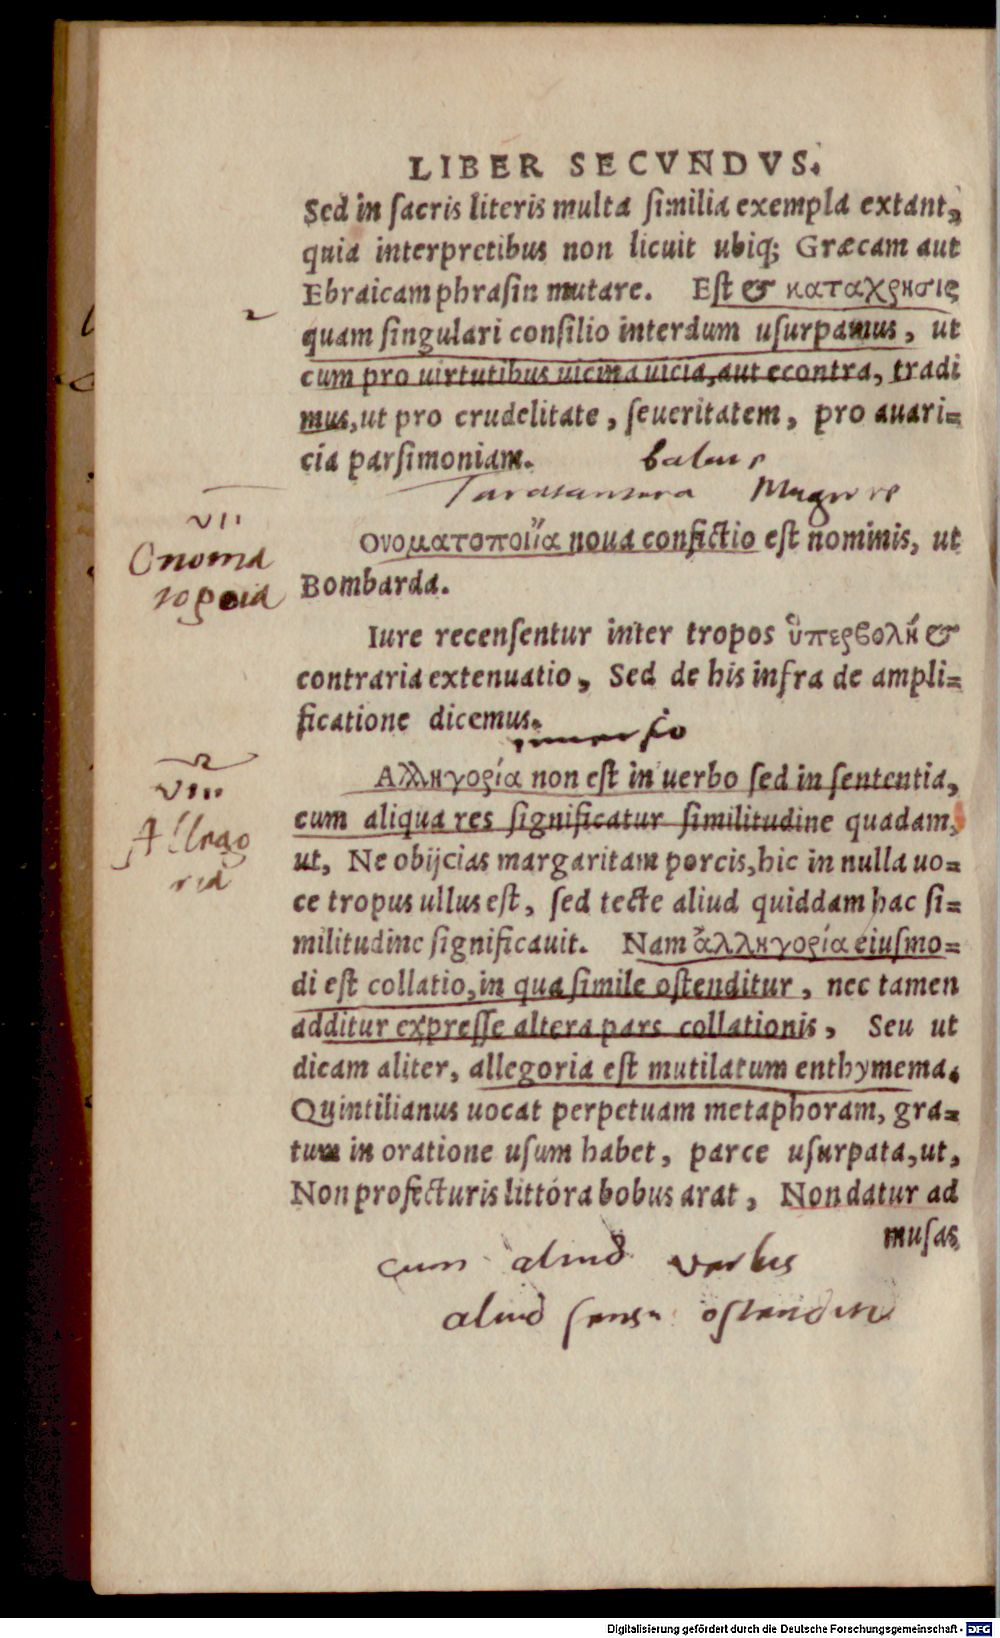 LIBER SECVNDVS.
Sed in ſacris literis multa ſimilia exempla extant,
quia interpretibus non licuit ubiq; Græcam aut
Ebraicam phraſin mutare. Eſt & καταχρησις
2
quam ſingulari conſilio interdum uſurpamus, ut
cum pro uirtutibus uicina uicia, aut econtra, tradi
mus, ut pro crudelitate, ſeueritatem, pro auari=
cia parſimoniam.
balare
Taratantara Mugire
VII
Onoma
topeia
Ονοματοποιΐα noua confictio eſt nominis, ut
Bombarda.
Iure recenſentur inter tropos ὑπερβολὴ &
contraria extenuatio, Sed de his infra de ampli=
ficatione dicemus.
inuerſio
VIII
Allego
ria
Αλληγορία non eſt in uerbo ſed in ſententia,
cum aliqua res ſignificatur ſimilitudine quadam,
ut, Ne obijcias margaritam porcis, hic in nulla uo=
ce tropus ullus eſt, ſed tecte aliud quiddam hac ſi=
militudine ſignificauit. Nam ἀλληγορία eiuſmo=
di eſt collatio, in qua ſimile oſtenditur, nec tamen
additur expreſſe altera pars collationis, Seu ut
dicam aliter, allegoria eſt mutilatum enthymema.
Quintilianus uocat perpetuam metaphoram, gra=
tum in oratione uſum habet, parce uſurpata, ut,
Non profecturis littora bobus arat, Non datur ad
muſas
cum aliud verbis
aliud ſensu oſtenditur
Digitalisierung gefördert durch die Deutsche Forschungsgemeinschaft - DFG